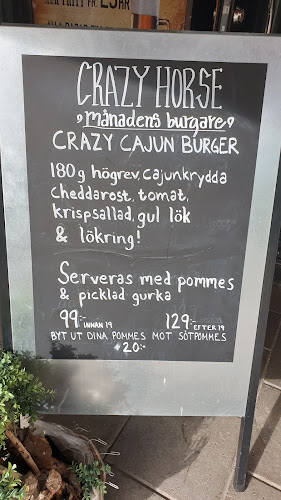 CRAZY HORSE
månadens burgare
CRAZY CAJUN BURGER
180g högrev, cajunkrydda
cheddarost, tomat,
krispsallad, gul lök
& lökring!
Serveras med pommes
& picklad gurka
99:- INNAN 19 129:- EFTER 19
BYT UT DINA POMMES MOT SÖTPOMMES
+20:-